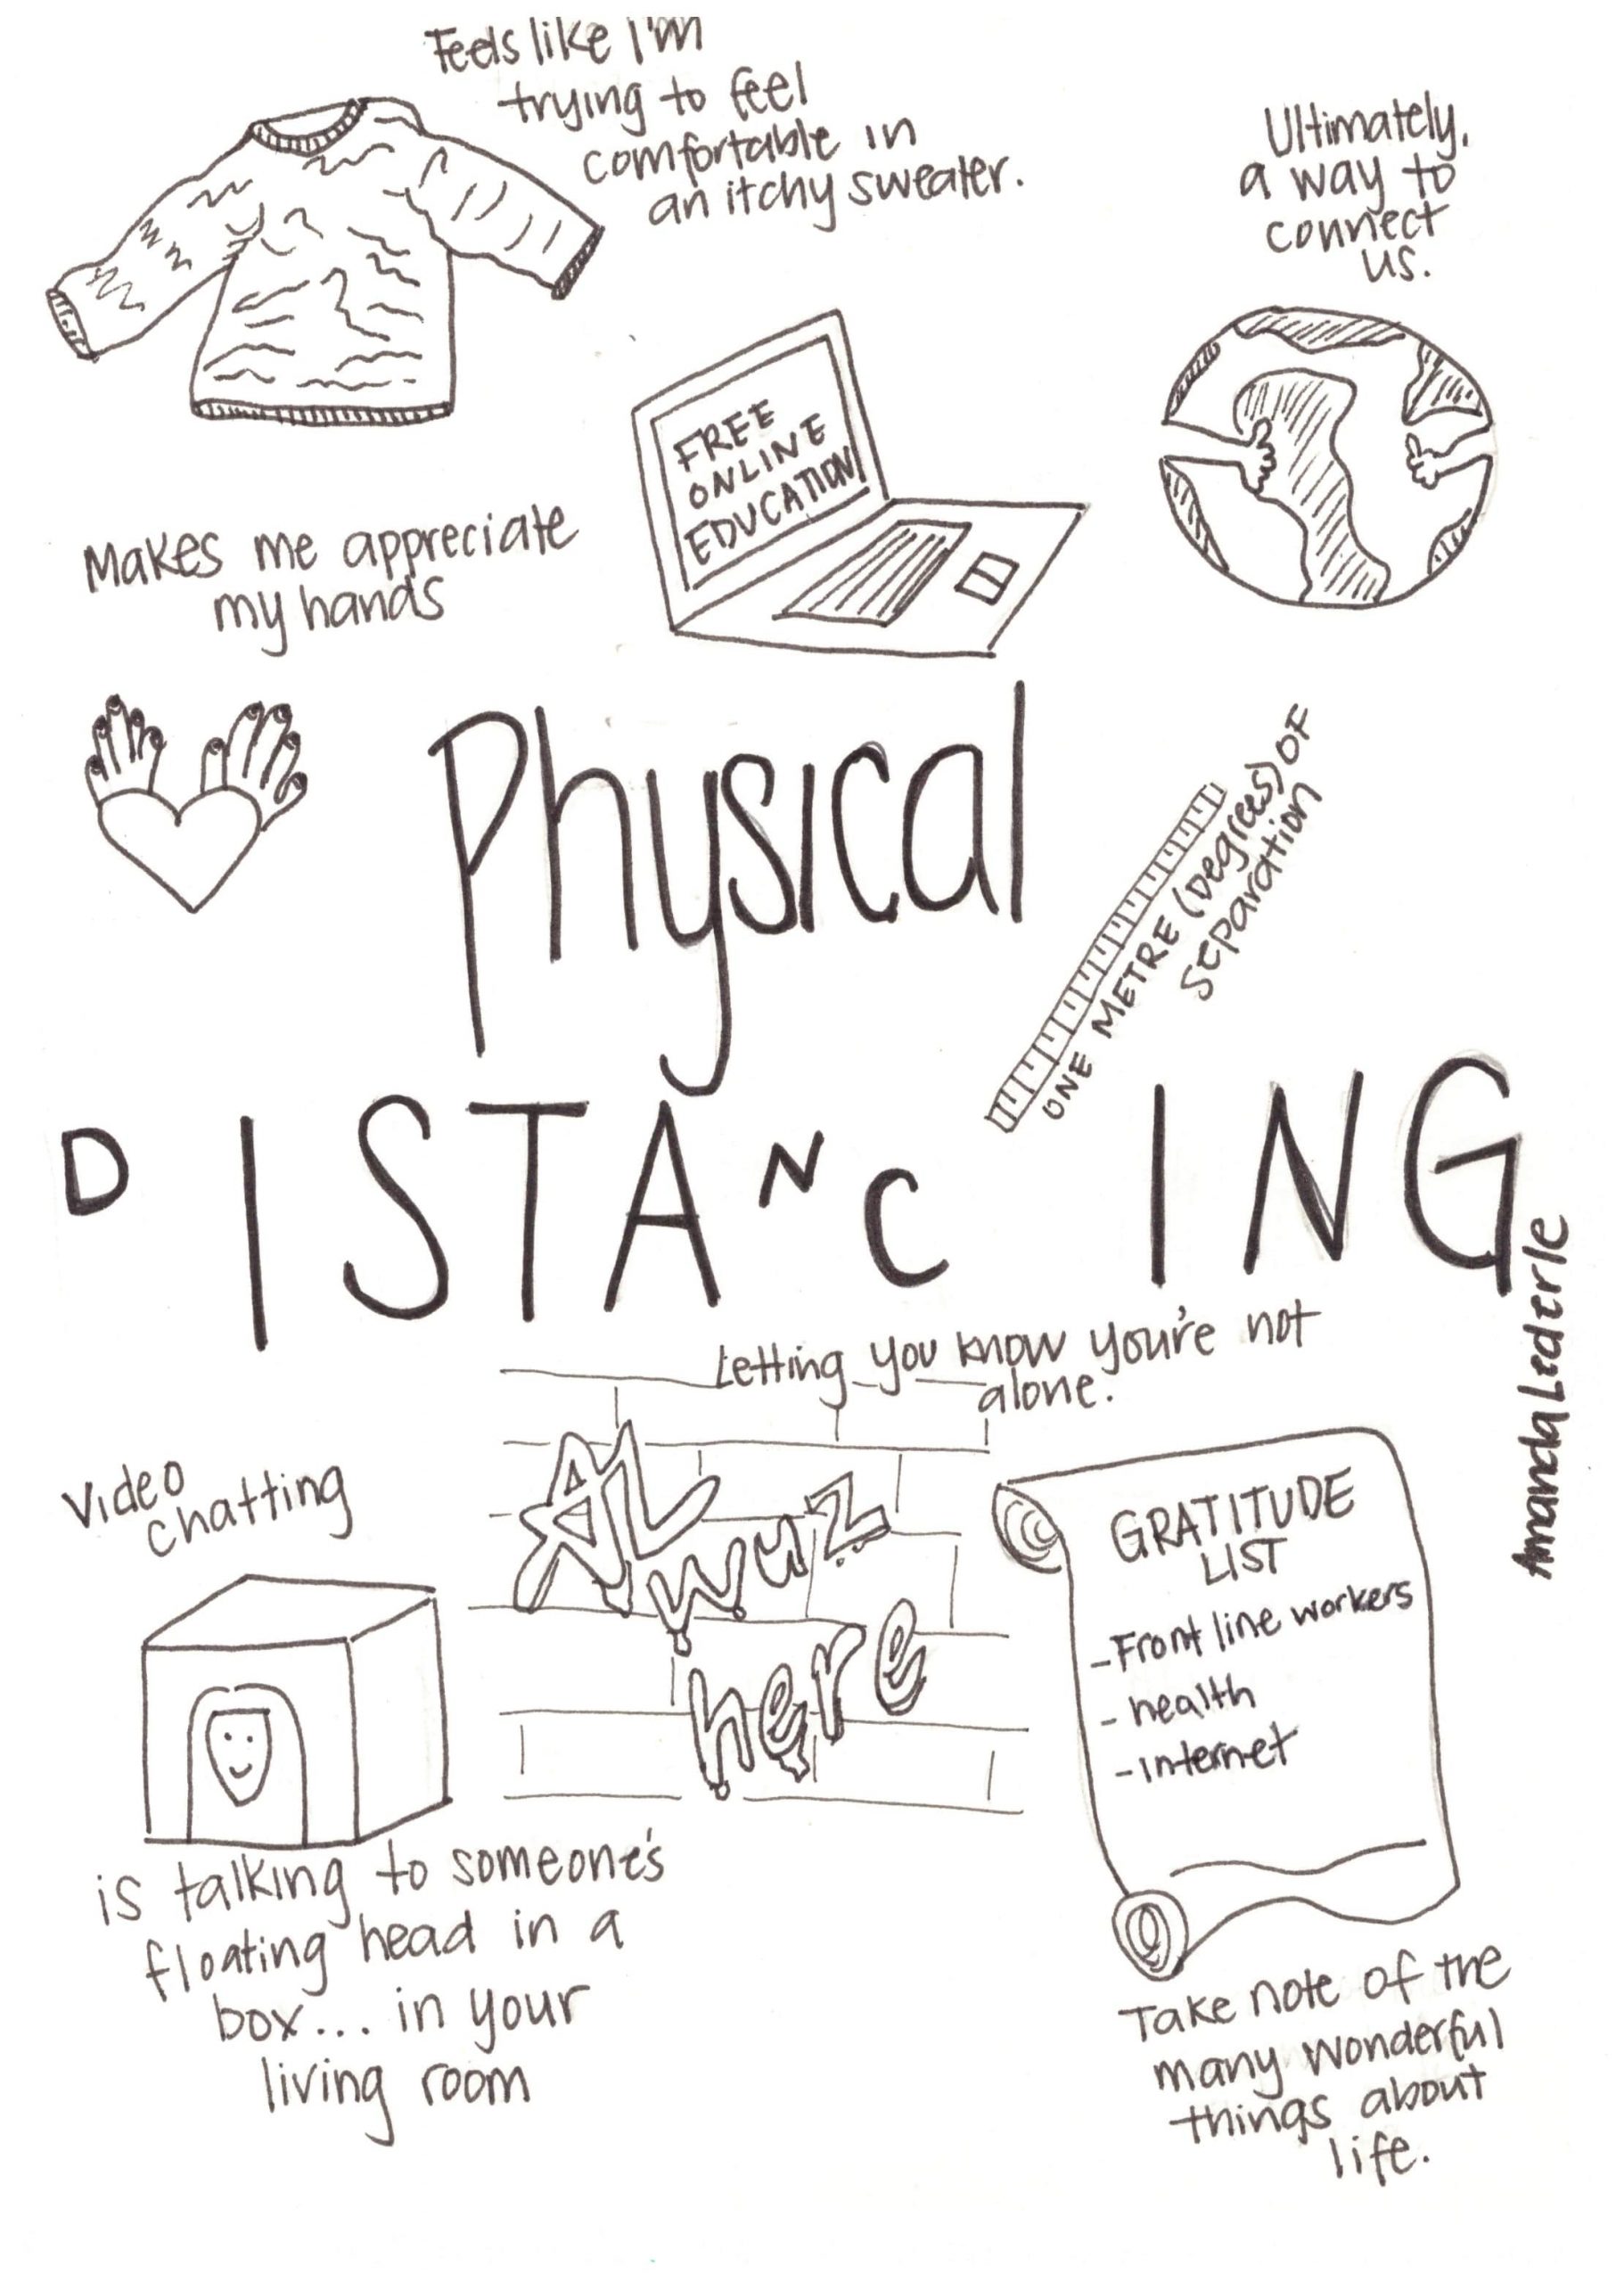 Feels like I'm
trying to feel
comfortable in
an itchy sweater.
Ultimately,
a way to
connect
us.
FREE
ONLINE
EDUCATION
Makes me appreciate
my hands
Physical
ONE METRE (Degrees) OF
separation
DISTANCING
Letting you know you're not
alone.
Amanda Lederle
Video
chatting
ALwuz
here
GRATITUDE
LIST
- Front line workers
- health
- internet
is talking to someone's
floating head in a
box... in your
living room
Take note of the
many wonderful
things about
life.